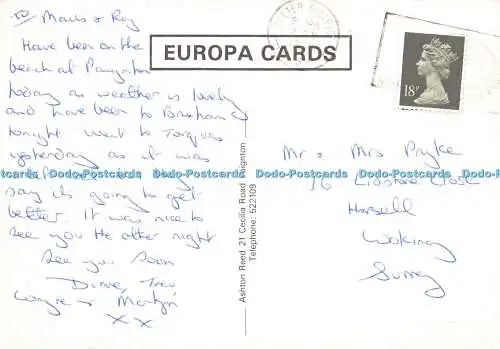 To Mavis & Roy
Have been on the
beach at Paignton
today as weather is lovely
and have been to Brixham
tonight went to Torquay
yesterday as it was
say it's going to get
better. It was nice to
see you the other night
See you Soon
Diane, Trev
Wayne & Martyn
XX
EUROPA CARDS
Ashton Reed 21 Cecilia Road Paignton
Telephone: 522109
18P
Mr & Mrs Pryke
16 Close
Horsell
Woking
Surrey
Dodo-Postcards Dodo-Postcards Dodo-Postcards Dodo-Postcards Dodo-Postcards Dodo-Postcards